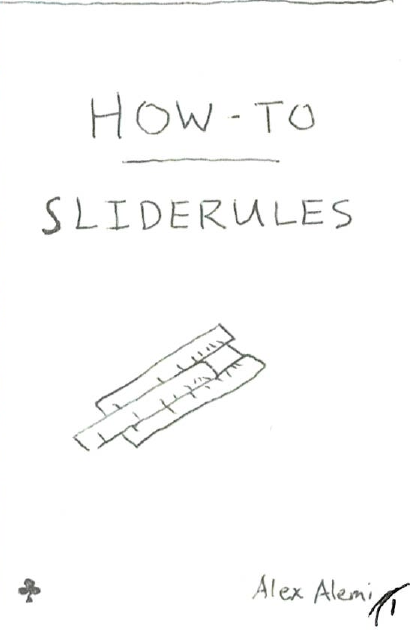 HOW-TO
SLIDERULES
Alex Alemi